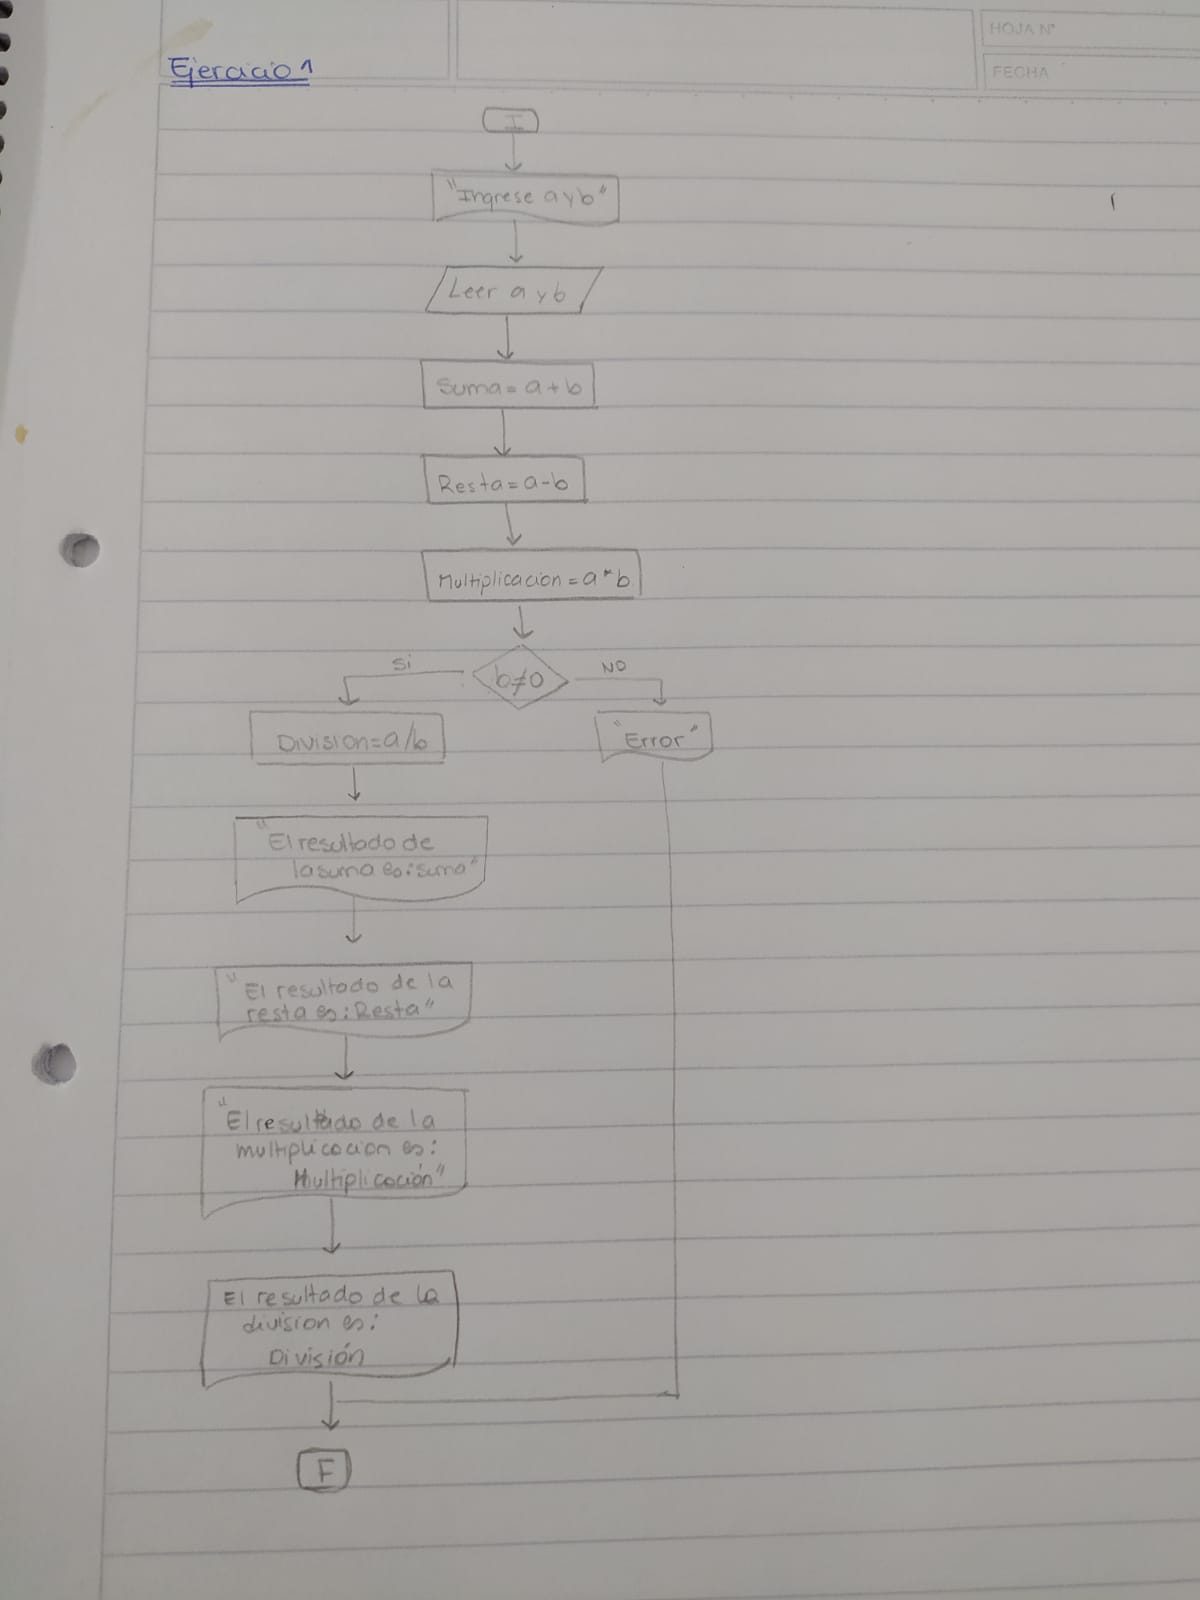 HOJA N°
FECHA
Ejercicio 1
I
"Ingrese a y b"
Leer a y b
Suma = a + b
Resta = a - b
Multiplicacion = a * b
Si
b≠0
NO
Division = a/b
"Error"
"El resultado de
la suma es: suma"
"El resultado de la
resta es: Resta"
"El resultado de la
multiplicacion es:
Multiplicación"
El resultado de la
division es:
División
F